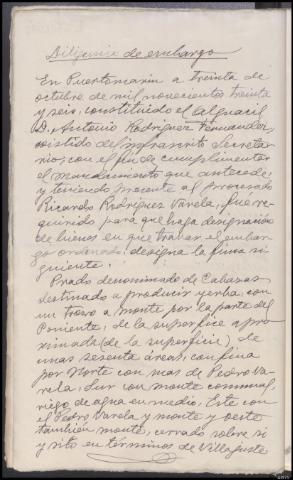 Diligencia de embargo
En Puertomarin a treinta de
octubre de mil novecientos treinta
y seis, constituido el alguacil
D. Antonio Rodriguez Fernandez,
asistido del infrascrito Secreta-
rio, con el fin de cumplimentar
el mandamiento que antecede,
y teniendo presente al procesado
Ricardo Rodriguez Varela, fue re-
querido para que haga designación
de bienes en que trabar el embar-
go ordenado: designa la finca si-
guiente:
Prado denominado de Cabanas
destinado a producir yerba, con
un trozo a monte por la parte del
Poniente, de la superfice apro-
ximada (de la superficie) de
unas sesenta áreas, confina
por Norte con mas de Pedro Va-
rela, Sur con monte comunal,
riego de agua en medio, Este con
el Pedro Varela y monte y oeste
también monte, cerrado sobre si
y sito en términos de Villajuste